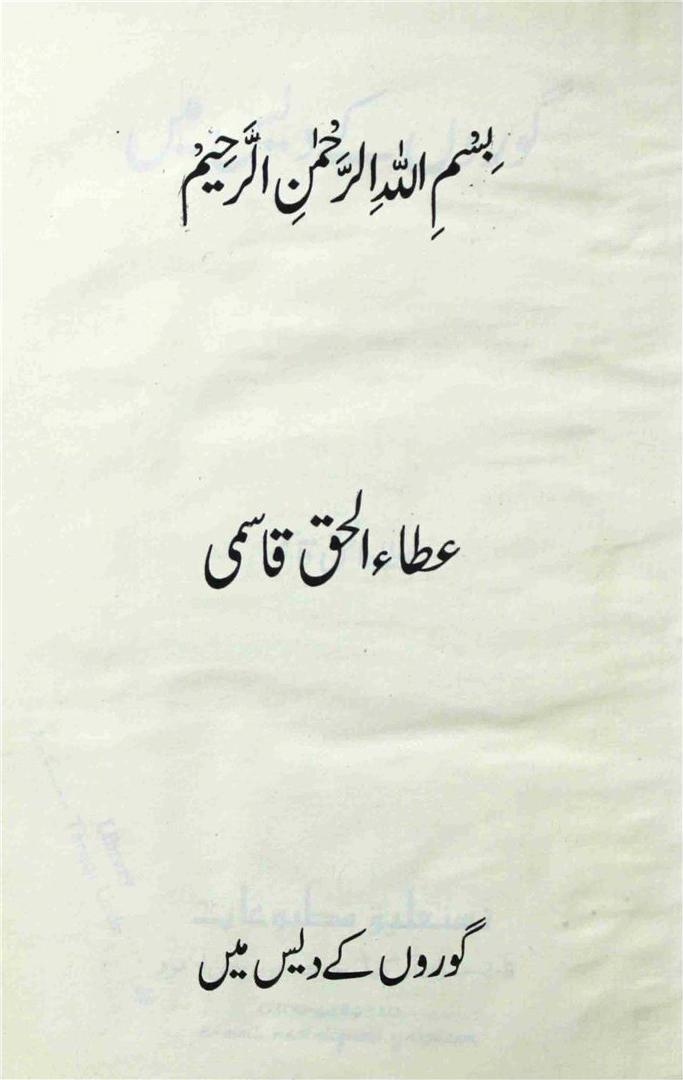 بِسْمِ اللّٰهِ الرَّحْمٰنِ الرَّحِیْمِ
عطاء الحق قاسمی
گوروں کے دیس میں